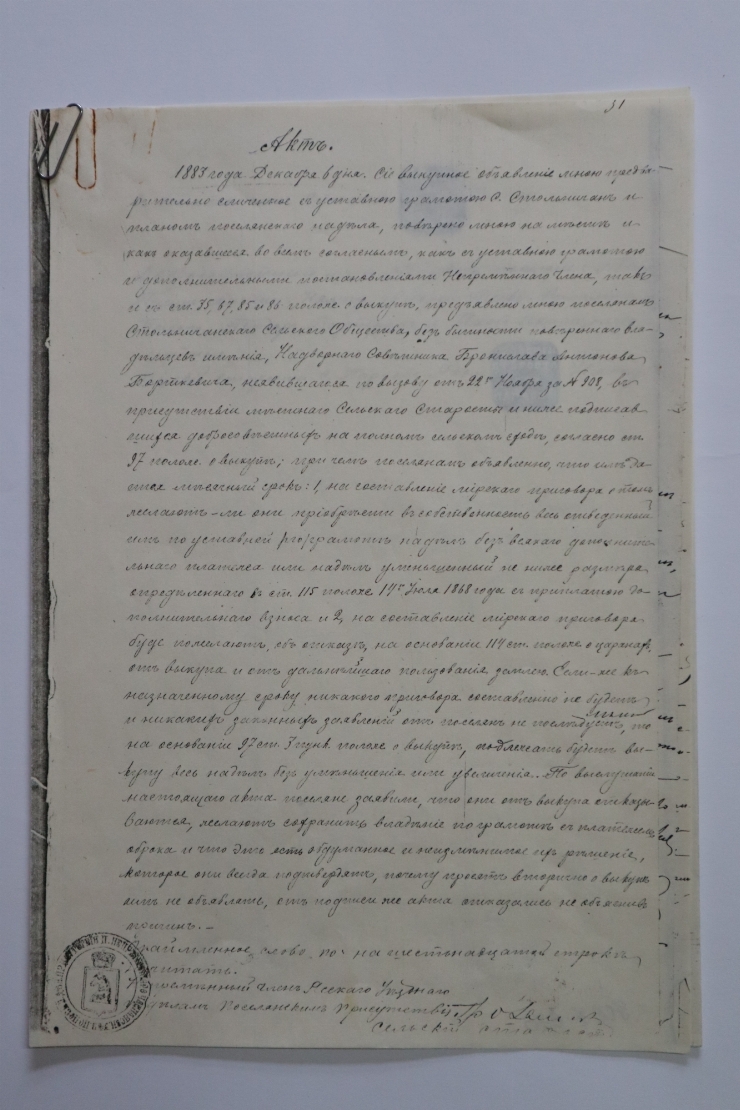 31
Актъ.
1883 года Декабря 8 дня. Сіе выкупное объявленіе мною предва-
рительно сличенное съ уставною грамотою С. Стольничанъ и
планомъ поселянскаго надѣла, повѣрено мною на мѣстѣ и
какъ оказавшееся во всемъ согласнымъ, какъ съ уставною грамотою
и дополнительными постановленіями Непремѣннаго Члена, такъ
и съ ст. 35, 67, 85 и 86 полож. о выкупѣ, предъявлено мною поселянамъ
Стольничанскаго Сельскаго Общества, безъ бытности повѣреннаго вла-
дѣльцевъ имѣнія, Надворнаго Совѣтника Бронислава Антонова
Борткевича, неявившагося по вызову отъ 22го Ноября за № 908, въ
присутствіи мѣстнаго Сельскаго Старосты и ниже подписав
шихся добросовѣстныхъ на полномъ сельскомъ сходѣ, согласно ст.
97 полож. о выкупѣ; при чемъ поселянамъ объявленно, что имъ да-
ется мѣсячный срокъ: 1, на составленіе мірскаго приговора о томъ
желаютъ-ли они пріобрѣсти въ собственность весь отведенный
имъ по уставной грамотѣ надѣлъ безъ всякаго дополните-
льнаго платежа или надѣлъ уменьшенный не ниже размѣра
опредѣленнаго въ ст. 115 полож. 14го Іюля 1868 года съ приплатою до-
полнительнаго взноса и 2, на составленіе мірскаго приговора
буде пожелаютъ, объ отказѣ, на основаніи 114 ст. полож. о царанахъ,
отъ выкупа и отъ дальнѣйшаго пользованія землею. Если-же къ
назначенному сроку никакого приговора составленно не будетъ
и никакихъ законныхъ заявленій отъ поселянъ не послѣдуетъ, то
на основаніи 97 ст. 3 пунк. полож. о выкупѣ, подлежать будетъ вы-
купу весь надѣлъ безъ уменьшенія или увеличенія. По выслушаніи
настоящаго акта поселяне заявили, что они отъ выкупа отказы-
ваются, желаютъ сохранить владѣніе по грамотѣ съ платежемъ
оброка и что это есть обдуманное и неизмѣнимое ихъ рѣшеніе,
которое они всегда подтвердятъ, почему просятъ вторично о выкупѣ
имъ не объявлять, отъ подписи же акта отказались не объяснивъ
причинъ. –
слово по на шестьнадцатой строкѣ
читать.
членъ Ясскаго Уѣзднаго
Поселянскимъ Присутствія
Сельскій